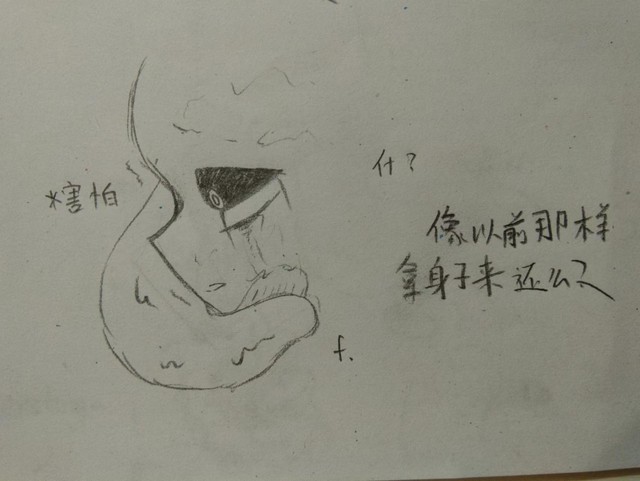 *害怕
什?
像以前那样
拿身子来还么?
f.